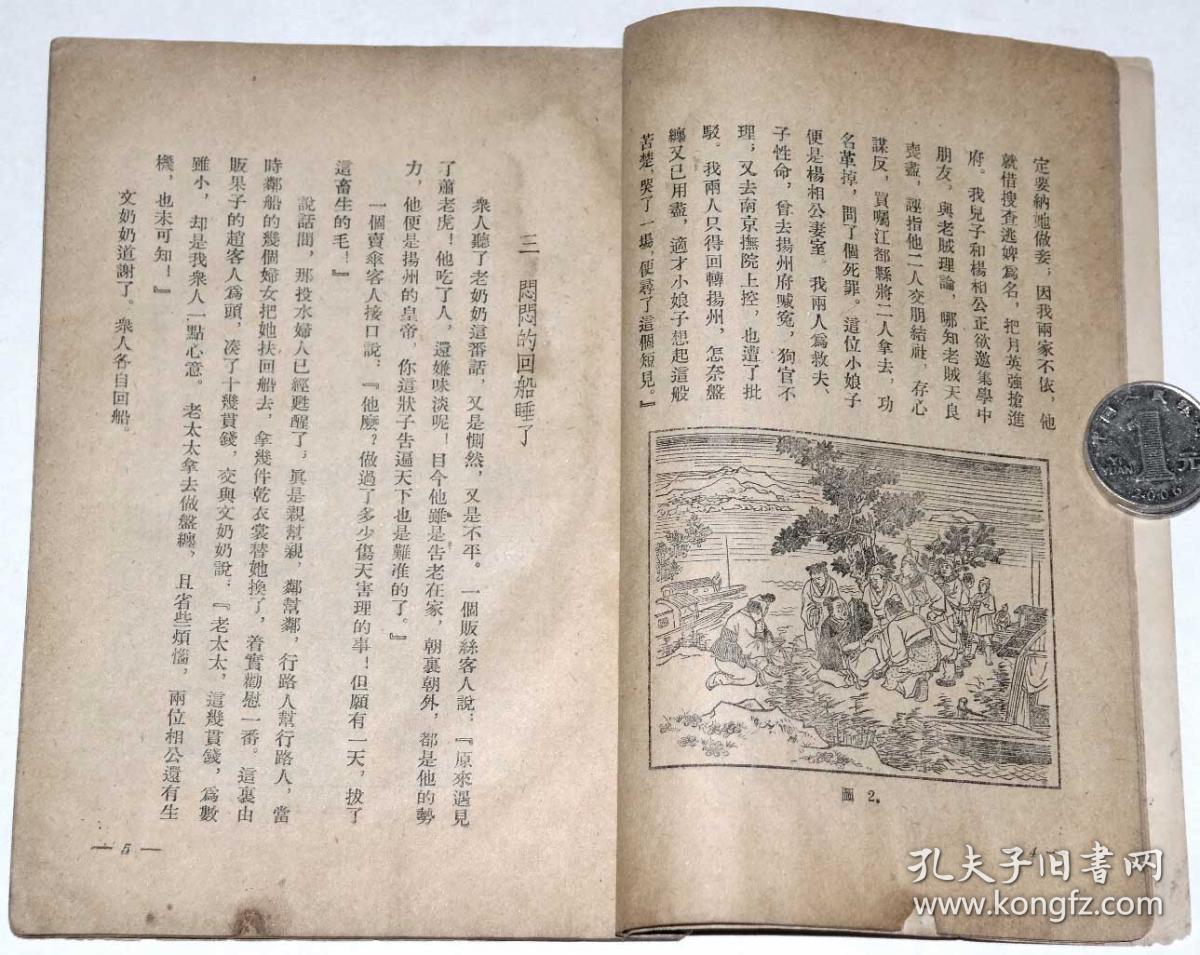 定要納她做妾；因我兩家不依，他
就借搜查逃婢爲名，把月英強搶進
府。我兒子和楊相公正欲邀集學中
朋友。與老賊理論，哪知老賊天良
喪盡，誣指他二人交朋結社，存心
謀反，買囑江都縣將二人拿去，功
名革掉，問了個死罪。這位小娘子
便是楊相公妻室。我兩人爲救夫、
子性命，曾去揚州府喊寃，狗官不
理；又去南京撫院上控，也遭了批
駁。我兩人只得回轉揚州，怎奈盤
纏又已用盡，適才小娘子想起這般
苦楚，哭了一場，便尋了這個短見。』
圖 2.
4
三 悶悶的回船睡了
衆人聽了老奶奶這番話，又是惻然，又是不平。一個販絲客人說：『原來遇見
了蕭老虎！他吃了人，還嫌味淡呢！目今他雖是告老在家，朝裏朝外，都是他的勢
力，他便是揚州的皇帝，你這狀子告遍天下也是難准的了。』
一個賣傘客人接口說：『他麼？做過了多少傷天害理的事！但願有一天，拔了
這畜生的毛！』
說話間，那投水婦人已經甦醒了，眞是親幫親，鄰幫鄰，行路人幫行路人，當
時鄰船的幾個婦女把她扶回船去，拿幾件乾衣裳替她換了，着實勸慰一番。這裏由
販果子的趙客人爲頭，凑了十幾貫錢，交與文奶奶說：『老太太，這幾貫錢，爲數
雖小，却是我衆人一點心意。老太太拿去做盤纏，且省些煩惱，兩位相公還有生
機，也未可知！』
文奶奶道謝了。衆人各自回船。
— 5 —
1
元
2006
孔夫子旧書网
www.kongfz.com